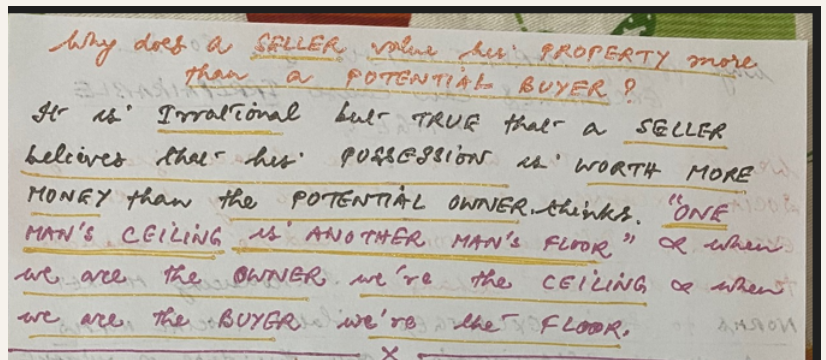 Why does a SELLER value his PROPERTY more
than a POTENTIAL BUYER?
It is Irrational but TRUE that a SELLER
believes that his POSSESSION is WORTH MORE
MONEY than the POTENTIAL OWNER thinks. "ONE
MAN'S CEILING is ANOTHER MAN'S FLOOR" & when
we are the OWNER we're the CEILING & when
we are the BUYER we're the FLOOR.